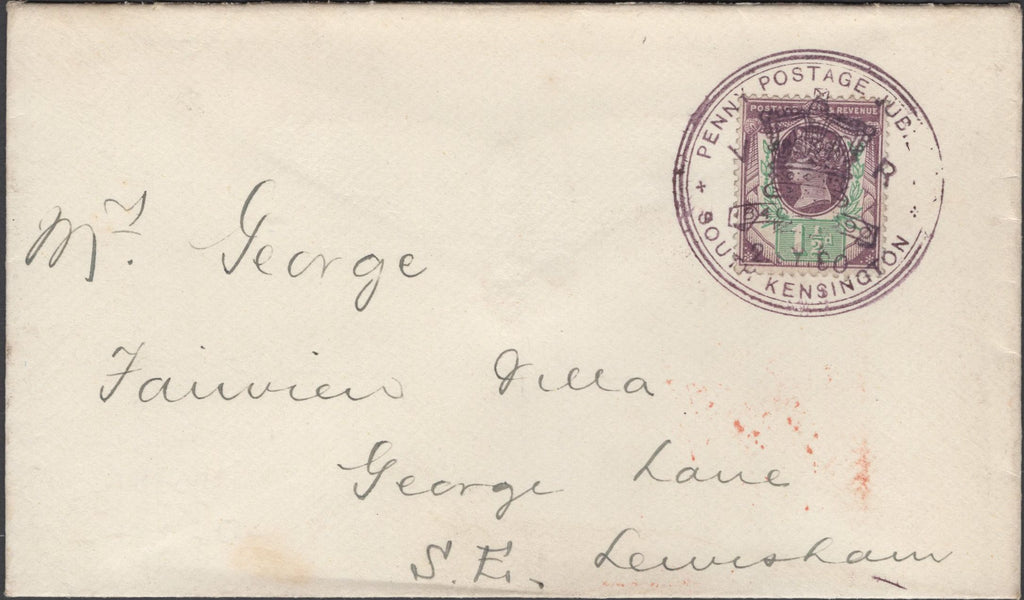 PENNY POSTAGE JUBIL
SOUTH KENSINGTON
POSTAGE & REVENUE
1½
Mr. George
Fairview Villa
George Lane
S.E. Lewisham